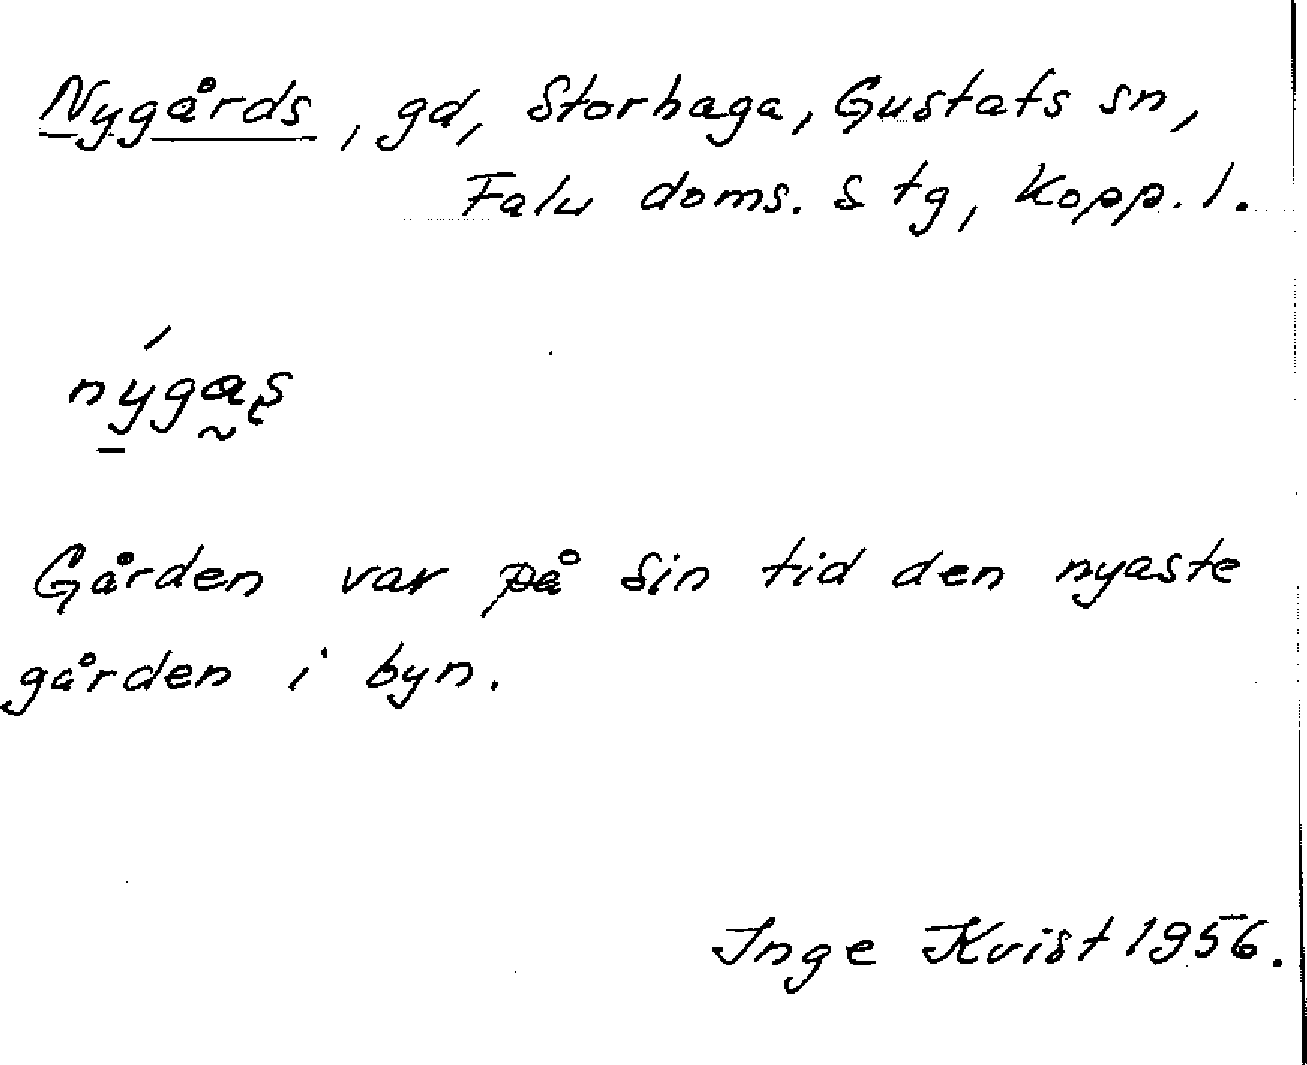 Nygårds, gd, Storhaga, Gustafs sn,
Falu doms. s tg, Kopp. l.
nýgas
Gården var på sin tid den nyaste
gården i byn.
Inge Kvist 1956.